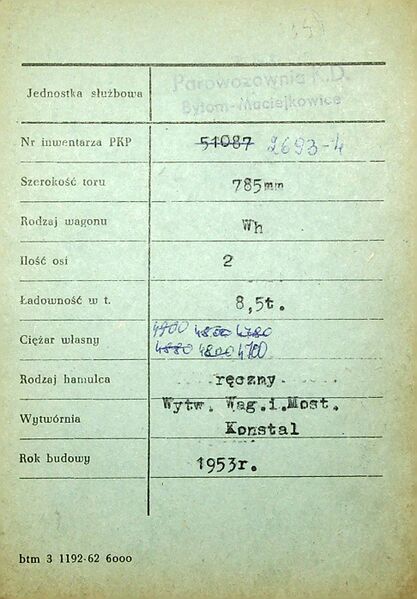 Parowozownia K.D.
Jednostka służbowa
Bytom-Maciejkowice
Nr inwentarza PKP 51087 2693-4
Szerokość toru 785mm
Rodzaj wagonu Wh
Ilość osi 2
Ładowność w t. 8,5t.
4900 4850 4780
Ciężar własny
4880 4800 4700
Rodzaj hamulca ręczny
Wytw. Wag.i.Most.
Wytwórnia
Konstal
Rok budowy 1953r.
btm 3 1192-62 6000